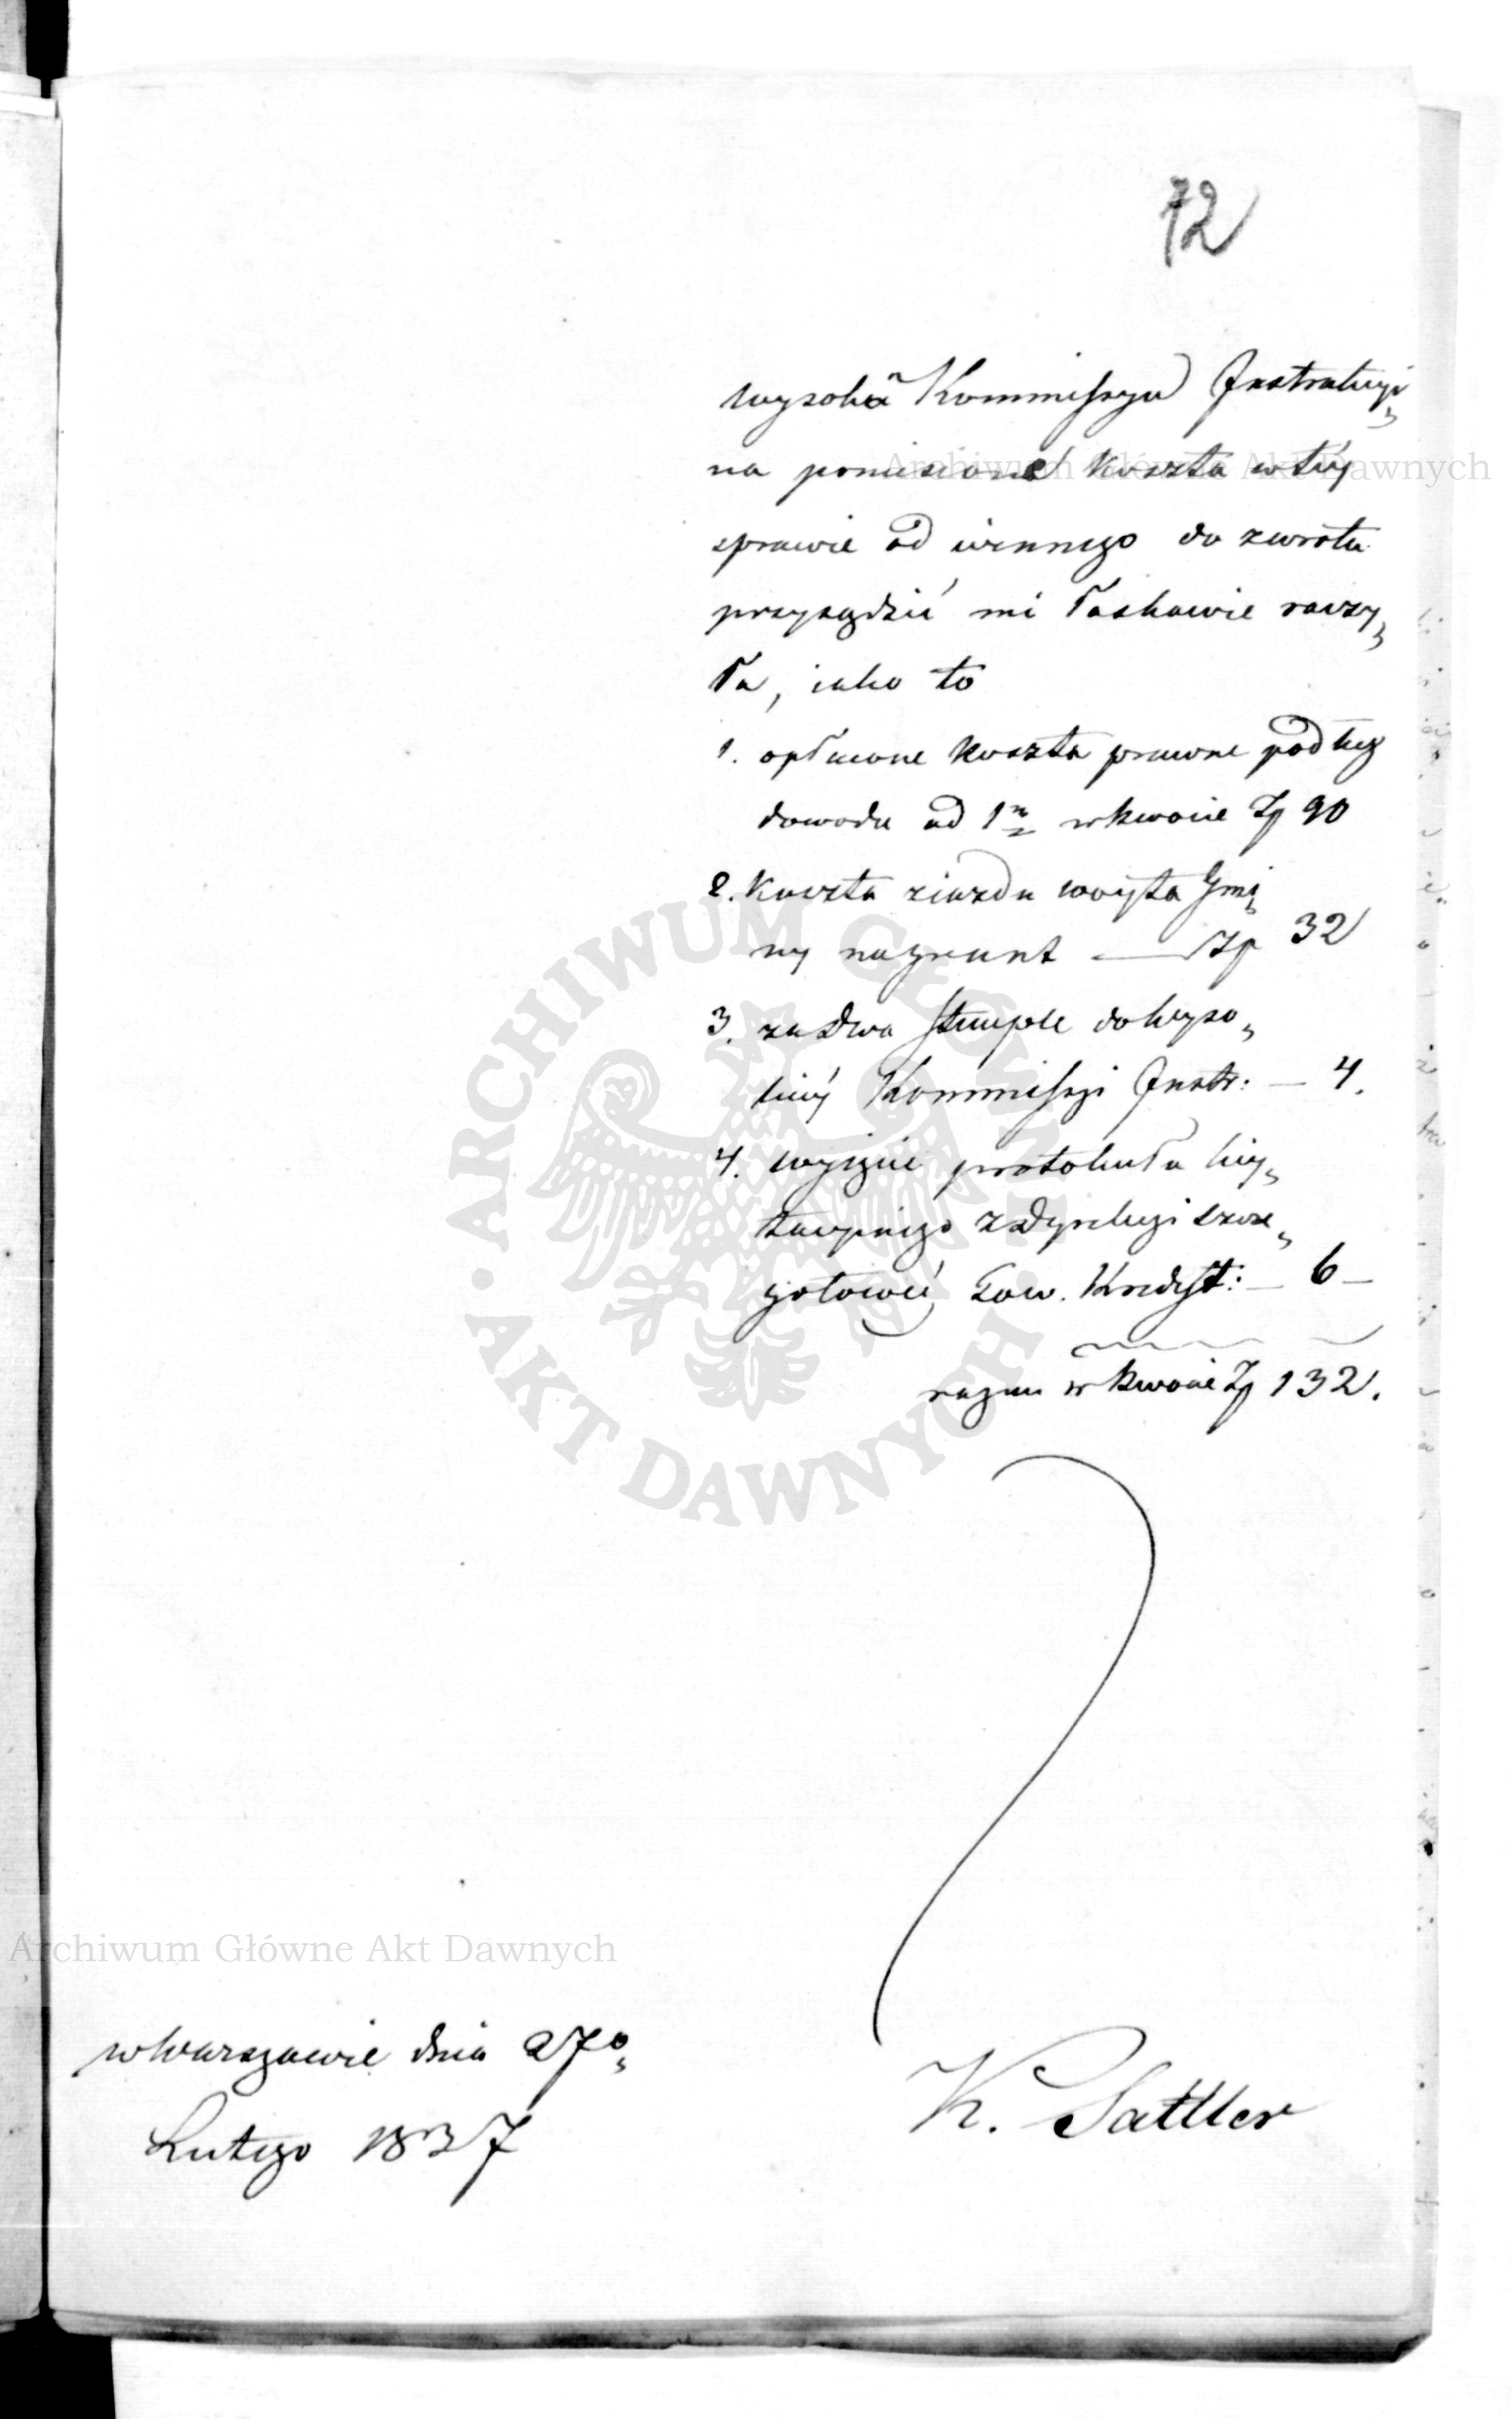 72
wysoka Kommissya Instrukcyi„
na poniesione koszta w téy
sprawie od winnego do zwrotu
przysądzić mi łaskawie raczy„
ła, iako to
1. opłacone koszta prawne podług
dowodu ad 1m w kwocie Zp 90
2. Koszta ziazdu woyta Gmi„
ny na grunt — Zp 32
3. za dwa stemple do wyso„
kiéy Kommissyi Instr: — 4.
4. wyięcie protokułu licy„
tacyinego z Dyrekcyi szcze„
gołowéy Tow. Kredyt: — 6 —
razem w kwocie Zp 132.
w Warszawie dnia 27o„
Lutego 1837
K. Sattler
Archiwum Główne Akt Dawnych
ARCHIWUM GŁÓWNE · AKT DAWNYCH ·
Archiwum Główne Akt Dawnych